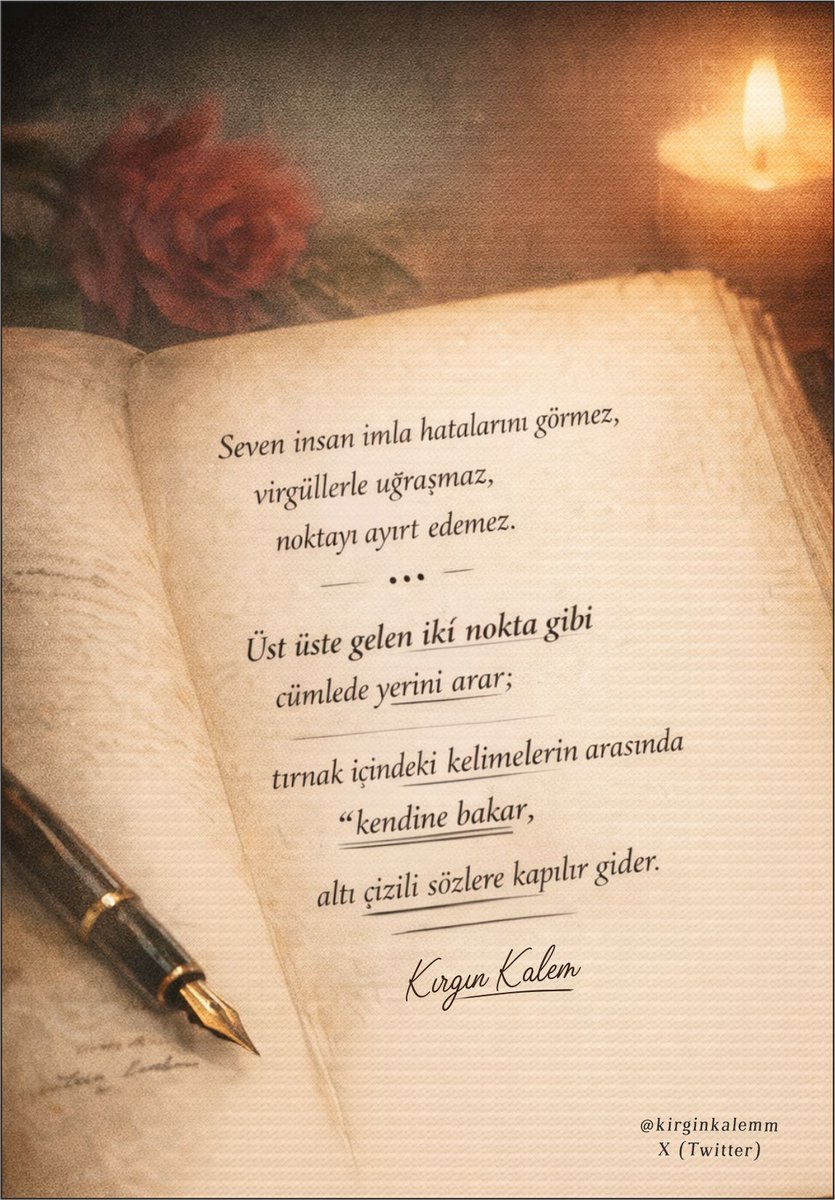 Seven insan imla hatalarını görmez,
virgüllerle uğraşmaz,
noktayı ayırt edemez.
Üst üste gelen ikí nokta gibi
cümlede yerini arar;
tırnak içindeki kelimelerin arasında
“kendine bakar,
altı çizili sözlere kapılır gider.
Kırgın Kalem
@kirginkalemm
X (Twitter)